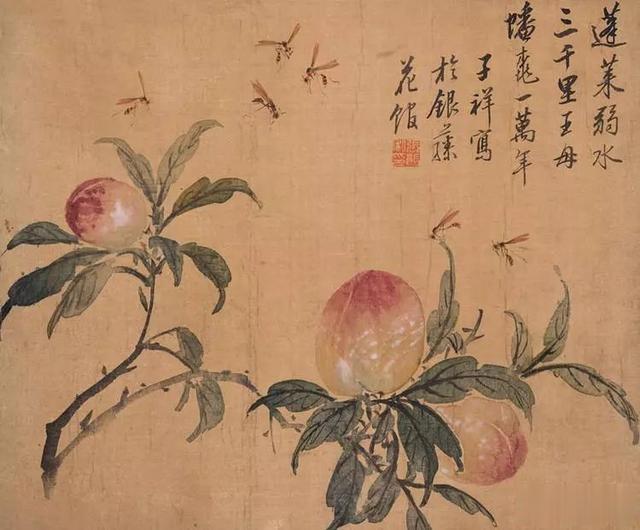 蓬萊弱水
三千里王母
蟠桃一萬年
子祥寫
於銀藤
花館